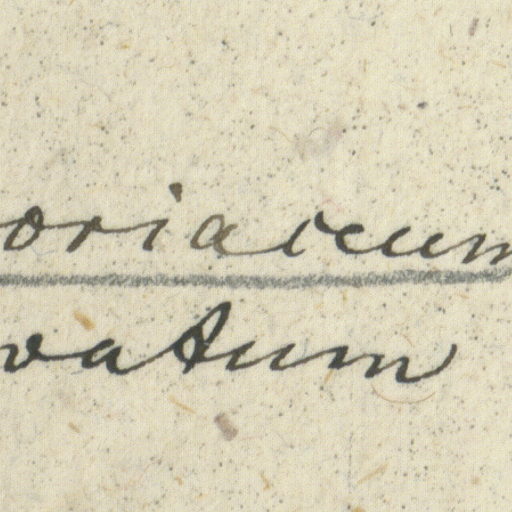 oriaceum
vatum